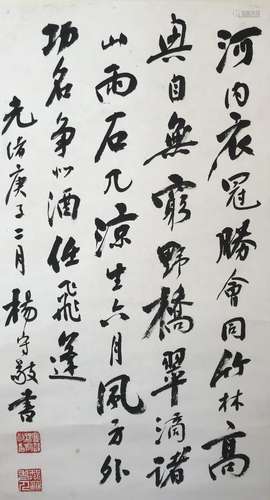 河内衣冠勝會同竹林高
興自無窮野橋翠滴諸
山雨石几涼生六月風方外
功名爭似酒任飛蓬
光緒庚子二月楊守敬書